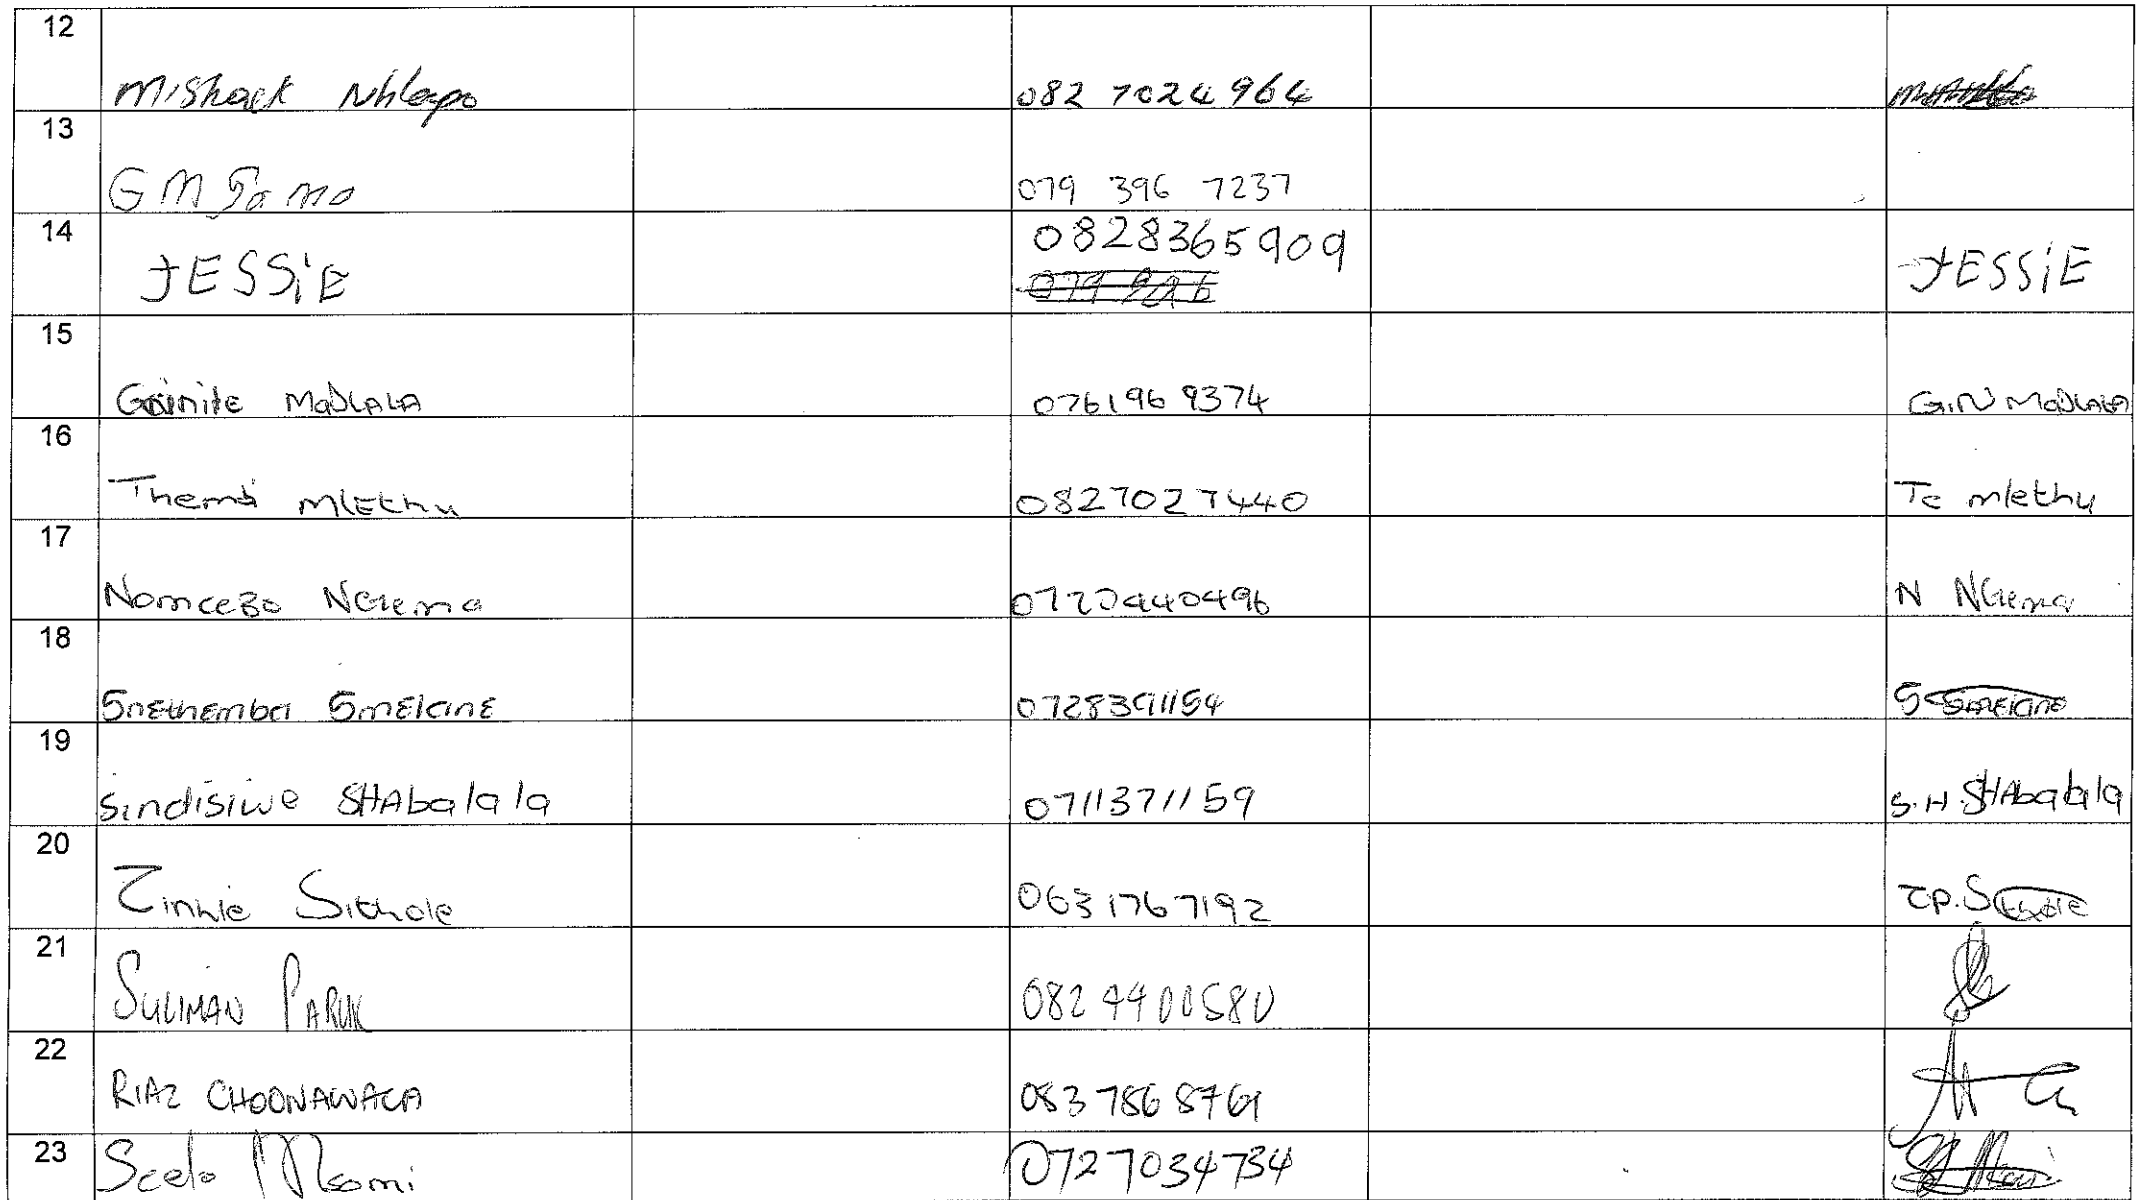 12
Mishack Nhlapo 082 7024 964
13
GM Jamo 079 396 7237
14
JESSiE 0828365909 JESSiE
15
MaDLALA 0761969374 G.N MaDLALA
16
Themb Mlethu 0827027440 Te mlethu
17
NomceBo NGema 0720440496 N NGema
18
SnEthemba SmElanE 0728391154
19
Sindisiwe SHAbalala 0711371159 S.H.SHAbalala
20
Zinhle Sithole 0631767192
21
SULIMAN PARUK 0824400580
22
RIAZ CHOONAWALA 083 786 8769
23
Scelo Mkomi 0727034734